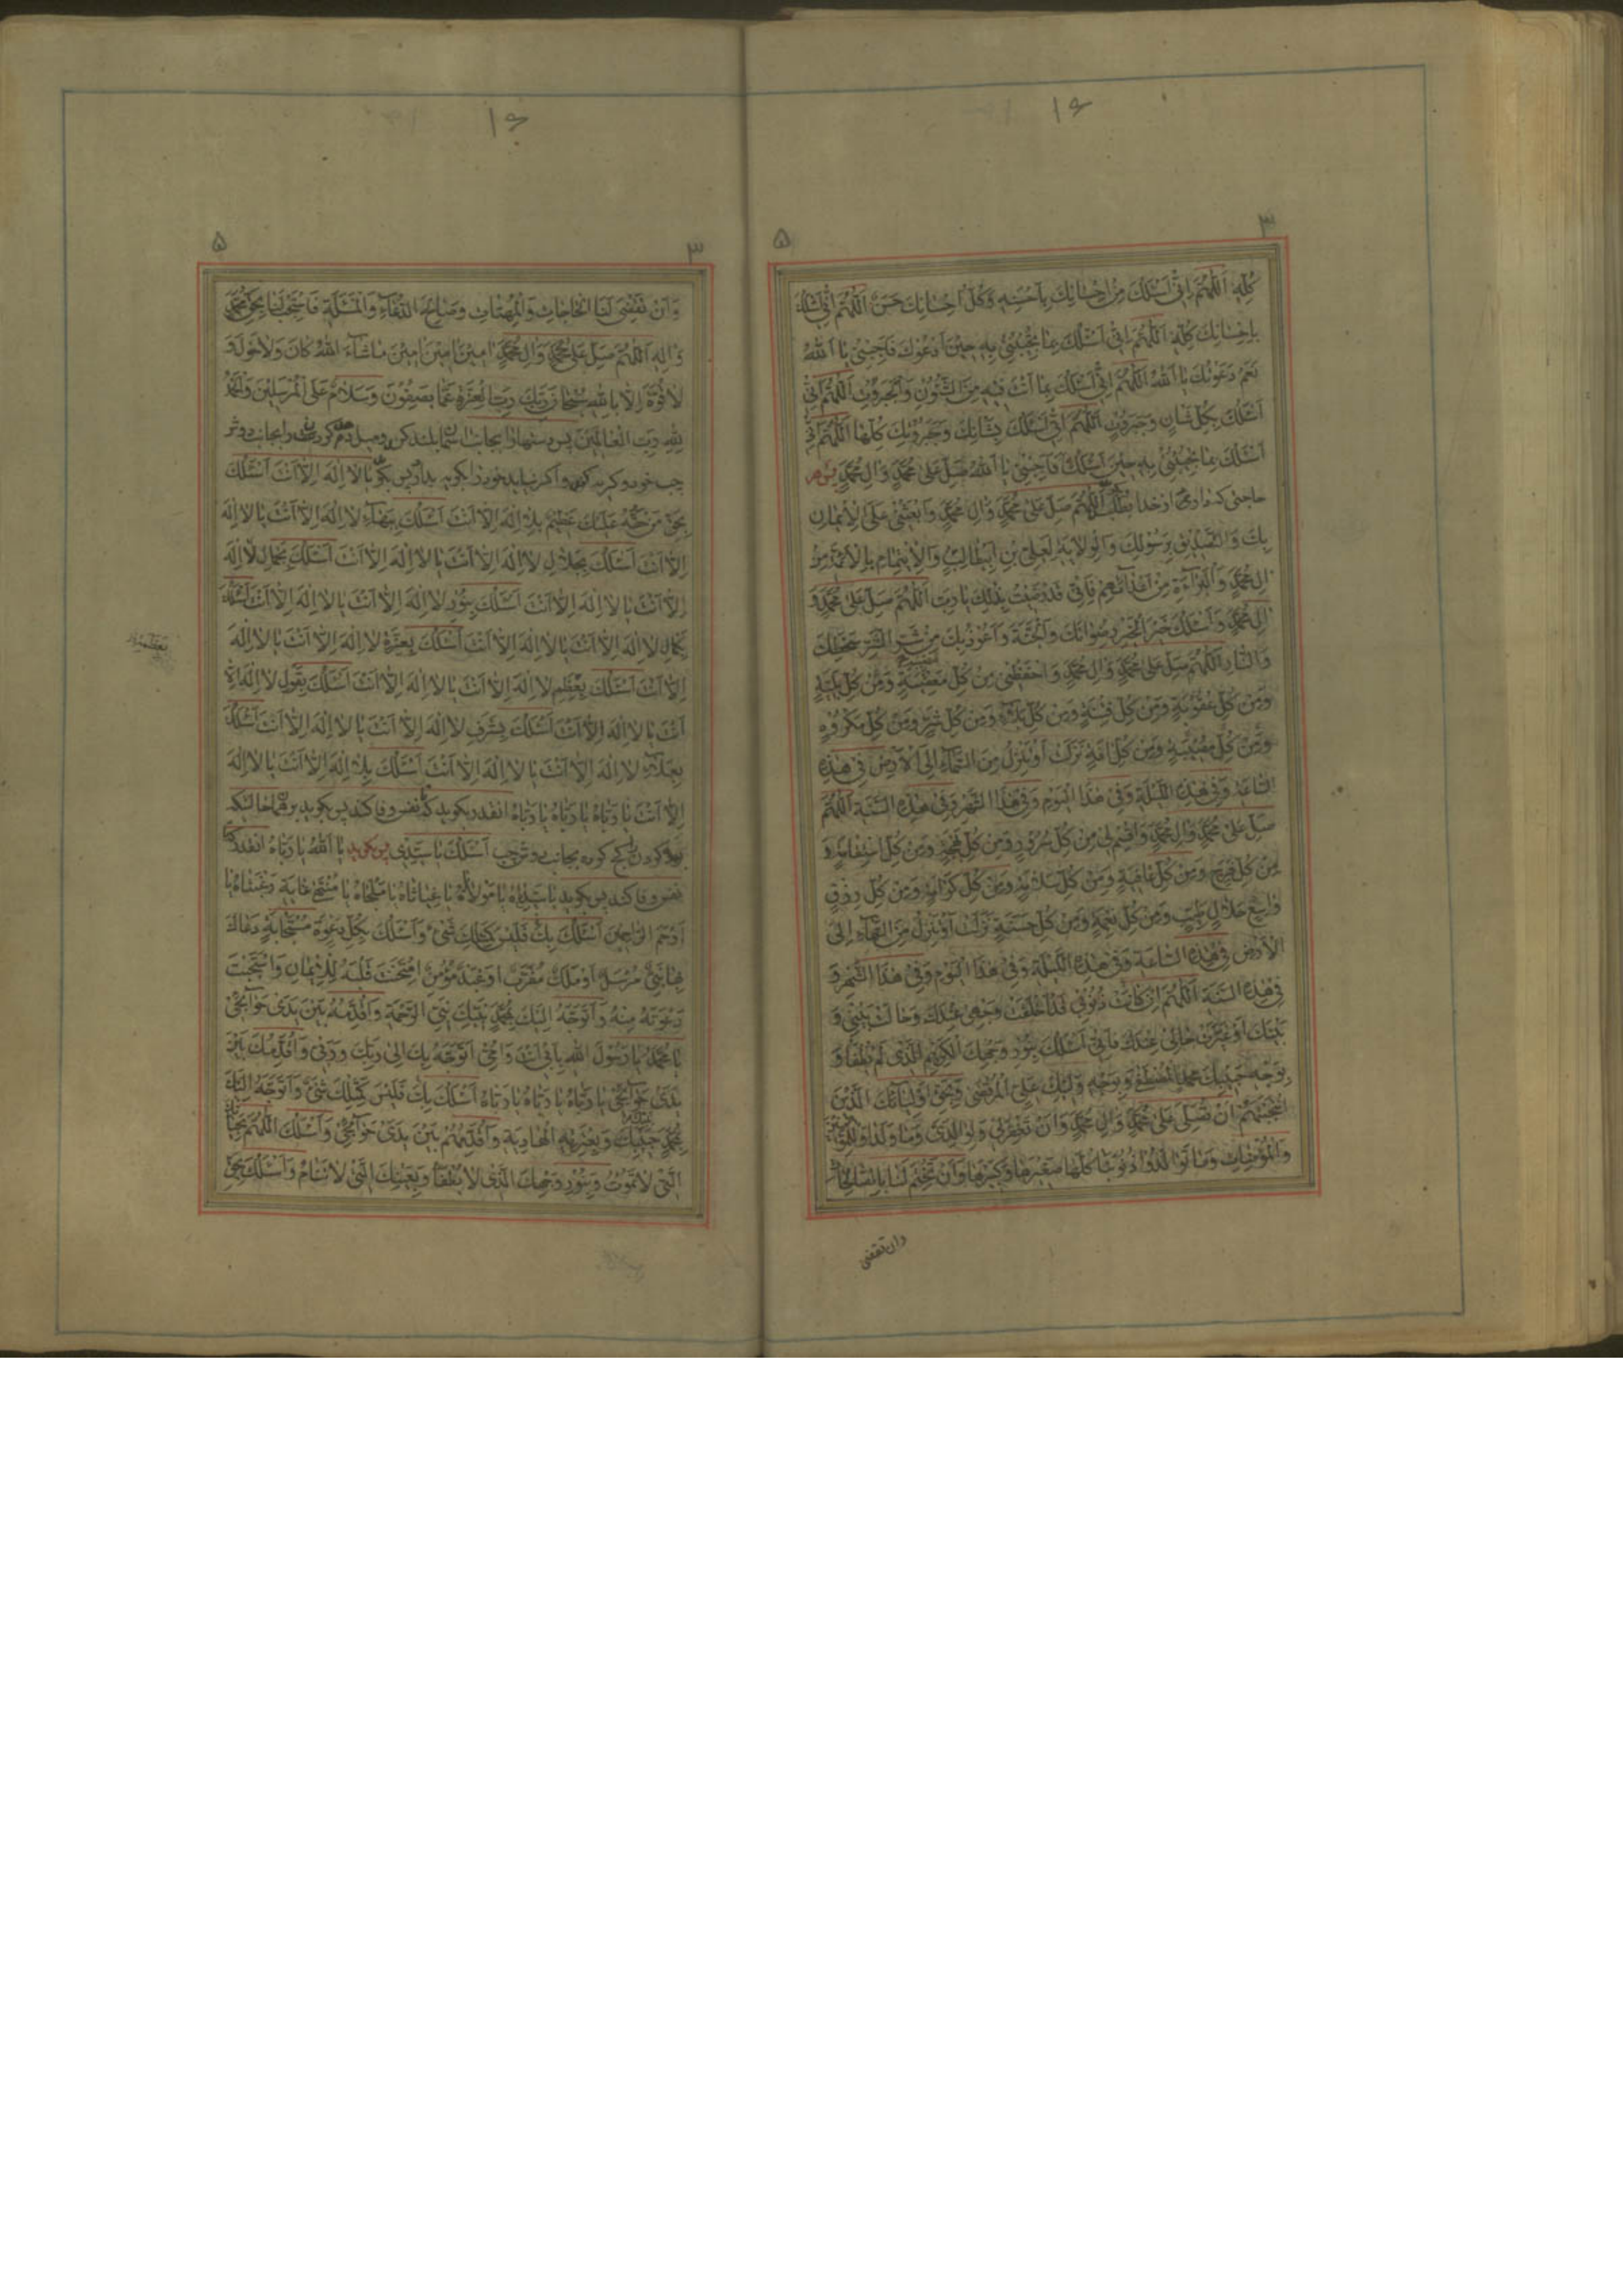 ۱۶
۳ ۵
كُلِّهِ اَللّٰهُمَّ اِنّى اَسْئَلُكَ مِنْ اِحْسانِكَ بِاَحْسَنِهِ وَكُلُّ اِحْسانِكَ حَسَنٌ اَللّٰهُمَّ اِنّى اَسْئَلُكَ
بِاِحْسانِكَ كُلِّهِ اَللّٰهُمَّ اِنّى اَسْئَلُكَ بِما تُجيبُنى بِهِ حينَ اَدْعُوكَ فَاَجِبْنى يا اَللّٰهُ
نَعَمْ دَعَوْتُكَ يا اَللّٰهُ اَللّٰهُمَّ اِنّى اَسْئَلُكَ بِما اَنْتَ فيهِ مِنَ الشُّئُونِ وَالْجَبَرُوتِ اَللّٰهُمَّ اِنّى
اَسْئَلُكَ بِكُلِّ شَاْنٍ وَجَبَرُوتٍ اَللّٰهُمَّ اِنّى اَسْئَلُكَ بِشَاْنِكَ وَجَبَرُوتِكَ كُلِّها اَللّٰهُمَّ اِنّى
اَسْئَلُكَ بِما تُجيبُنى بِهِ حينَ اَسْئَلُكَ فَاَجِبْنى يا اَللّٰهُ صَلِّ عَلى مُحَمَّدٍ وَالِ مُحَمَّدٍ پس هر
حاجتى كه دارى از خدا بطلب اَللّٰهُمَّ صَلِّ عَلى مُحَمَّدٍ وَالِ مُحَمَّدٍ وَابْعَثْنى عَلَى الْايمانِ
بِكَ وَالتَّصْديقِ بِرَسُولِكَ وَالْوِلايَةِ لِعَلِىِّ بْنِ اَبيطالِبٍ وَالْايتِمامِ بِالْاَئِمَّةِ مِنْ
الِ مُحَمَّدٍ وَالْبَراءَةِ مِنْ اَعْدائِهِمْ فَاِنّى قَدْ رَضيتُ بِذٰلِكَ يا رَبِّ اَللّٰهُمَّ صَلِّ عَلى مُحَمَّدٍ وَ
الِ مُحَمَّدٍ وَاَسْئَلُكَ خَيْرَ الْخَيْرِ رِضْوانَكَ وَالْجَنَّةَ وَاَعُوذُ بِكَ مِنْ شَرِّ الشَّرِّ سَخَطِكَ
وَالنّارِ اَللّٰهُمَّ صَلِّ عَلى مُحَمَّدٍ وَالِ مُحَمَّدٍ وَاحْفَظْنى مِنْ كُلِّ وَمِنْ كُلِّ بَلِيَّةٍ
وَمِنْ كُلِّ عُقُوبَةٍ وَمِنْ كُلِّ فِتْنَةٍ وَمِنْ كُلِّ بَلاءٍ وَمِنْ كُلِّ شَرٍّ وَمِنْ كُلِّ مَكْرُوهٍ
وَمِنْ كُلِّ مُصيبَةٍ وَمِنْ كُلِّ افَةٍ نَزَلَتْ اَوْ تَنْزِلُ مِنَ السَّماءِ اِلَى الْاَرْضِ فى هٰذِهِ
السّاعَةِ وَفى هٰذِهِ اللَّيْلَةِ وَفى هٰذَا الْيَوْمِ وَفى هٰذَا الشَّهْرِ وَفى هٰذِهِ السَّنَةِ اَللّٰهُمَّ
صَلِّ عَلى مُحَمَّدٍ وَالِ مُحَمَّدٍ وَاقْسِمْ لى مِنْ كُلِّ سُرُورٍ وَمِنْ كُلِّ بَهْجَةٍ وَمِنْ كُلِّ اسْتِقامَةٍ وَ
مِنْ كُلِّ فَرَجٍ وَمِنْ كُلِّ عافِيَةٍ وَمِنْ كُلِّ سَلامَةٍ وَمِنْ كُلِّ كَرامَةٍ وَمِنْ كُلِّ رِزْقٍ
واسِعٍ حَلالٍ طَيِّبٍ وَمِنْ كُلِّ نِعْمَةٍ وَمِنْ كُلِّ حَسَنَةٍ نَزَلَتْ اَوْ تَنْزِلُ مِنَ السَّماءِ اِلَى
الْاَرْضِ فى هٰذِهِ السّاعَةِ وَفى هٰذِهِ اللَّيْلَةِ وَفى هٰذَا الْيَوْمِ وَفى هٰذَا الشَّهْرِ وَ
فى هٰذِهِ السَّنَةِ اَللّٰهُمَّ اِنْ كانَتْ ذُنُوبى قَدْ اَخْلَقَتْ وَجْهى عِنْدَكَ وَحالَتْ بَيْنى وَ
بَيْنَكَ اَوْ غَيَّرَتْ حالى عِنْدَكَ فَاِنّى اَسْئَلُكَ بِنُورِ وَجْهِكَ الْكَريمِ الَّذى لَمْ يُطْفَأْ وَ
بِوَجْهِ حَبيبِكَ مُحَمَّدٍ الْمُصْطَفى وَبِوَجْهِ وَلِيِّكَ عَلِىٍّ الْمُرْتَضى وَبِحَقِّ اَوْلِيائِكَ الَّذينَ
انْتَجَبْتَهُمْ اَنْ تُصَلِّىَ عَلى مُحَمَّدٍ وَالِ مُحَمَّدٍ وَاَنْ تَغْفِرَ لى وَلِوالِدَىَّ وَما وَلَدا وَلِلْمُؤْمِنينَ
وَالْمُؤْمِناتِ وَما تَوالَدُوا ذُنُوبَنا كُلَّها صَغيرَها وَكَبيرَها وَاَنْ تَخْتِمَ لَنا بِالصّالِحاتِ
وان تقضى
۱۶
۳ ۵
وَاَنْ تَقْضِىَ لَنَا الْحاجاتِ وَالْمُهِمّاتِ وَصالِحَ الدُّعاءِ وَالْمَسْئَلَةِ فَاسْتَجِبْ لَنا بِحَقِّ مُحَمَّدٍ
وَالِهِ اَللّٰهُمَّ صَلِّ عَلى مُحَمَّدٍ وَالِ مُحَمَّدٍ امينَ امينَ امينَ ما شاءَ اللّٰهُ كانَ وَلا حَوْلَ وَ
لا قُوَّةَ اِلّا بِاللّٰهِ سُبْحانَ رَبِّكَ رَبِّ الْعِزَّةِ عَمّا يَصِفُونَ وَسَلامٌ عَلَى الْمُرْسَلينَ وَالْحَمْدُ
لِلّٰهِ رَبِّ الْعالَمينَ پس دستها را بجانب اسمان بلند كن و ميل ده گردن را بجانب دوش
چپ خود و گريه كن و اگر نيايد خود را بگريه بدار پس بگو يا لا اِلٰهَ اِلّا اَنْتَ اَسْئَلُكَ
بِحَقِّ مَنْ حَقُّهُ عَلَيْكَ عَظيمٌ بِلا اِلٰهَ اِلّا اَنْتَ اَسْئَلُكَ بِبَهاءِ لا اِلٰهَ اِلّا اَنْتَ يا لا اِلٰهَ
اِلّا اَنْتَ اَسْئَلُكَ بِجَلالِ لا اِلٰهَ اِلّا اَنْتَ يا لا اِلٰهَ اِلّا اَنْتَ اَسْئَلُكَ بِجَمالِ لا اِلٰهَ
اِلّا اَنْتَ يا لا اِلٰهَ اِلّا اَنْتَ اَسْئَلُكَ بِنُورِ لا اِلٰهَ اِلّا اَنْتَ يا لا اِلٰهَ اِلّا اَنْتَ اَسْئَلُكَ
بِكَمالِ لا اِلٰهَ اِلّا اَنْتَ يا لا اِلٰهَ اِلّا اَنْتَ اَسْئَلُكَ بِعِزَّةِ لا اِلٰهَ اِلّا اَنْتَ يا لا اِلٰهَ
اِلّا اَنْتَ اَسْئَلُكَ بِعِظَمِ لا اِلٰهَ اِلّا اَنْتَ يا لا اِلٰهَ اِلّا اَنْتَ اَسْئَلُكَ بِقَوْلِ لا اِلٰهَ اِلّا
اَنْتَ يا لا اِلٰهَ اِلّا اَنْتَ اَسْئَلُكَ بِشَرَفِ لا اِلٰهَ اِلّا اَنْتَ يا لا اِلٰهَ اِلّا اَنْتَ اَسْئَلُكَ
بِعَلاءِ لا اِلٰهَ اِلّا اَنْتَ يا لا اِلٰهَ اِلّا اَنْتَ اَسْئَلُكَ بِلا اِلٰهَ اِلّا اَنْتَ يا لا اِلٰهَ
اِلّا اَنْتَ يا رَبّاهُ يا رَبّاهُ يا رَبّاهُ انقدر بگويد كه نفس وفا كند پس بگويد
گردن كج كرده بجانب دوش چپ اَسْئَلُكَ يا سَيِّدى پس بگويد يا اَللّٰهُ يا رَبّاهُ انقدر كه
نفس وفا كند پس بگويد يا سَيِّداهُ يا مَوْلاهُ يا غِياثاهُ يا مَلْجَاهُ يا مُنْتَهى غايَةِ رَغْبَتاهُ يا
اَرْحَمَ الرّاحِمينَ اَسْئَلُكَ بِكَ فَلَيْسَ كَمِثْلِكَ شَىْءٌ وَاَسْئَلُكَ بِكُلِّ دَعْوَةٍ مُسْتَجابَةٍ دَعاكَ
بِها نَبِىٌّ مُرْسَلٌ اَوْ مَلَكٌ مُقَرَّبٌ اَوْ عَبْدٌ مُؤْمِنٌ امْتَحَنْتَ قَلْبَهُ لِلْايمانِ وَاسْتَجَبْتَ
دَعْوَتَهُ مِنْهُ وَاَتَوَجَّهُ اِلَيْكَ بِمُحَمَّدٍ نَبِيِّكَ نَبِىِّ الرَّحْمَةِ وَاُقَدِّمُهُ بَيْنَ يَدَىْ حَوائِجى
يا مُحَمَّدُ يا رَسُولَ اللّٰهِ بِاَبى اَنْتَ وَاُمّى اَتَوَجَّهُ بِكَ اِلى رَبِّكَ وَرَبّى وَاُقَدِّمُكَ بَيْنَ
يَدَىْ حَوائِجى يا رَبّاهُ يا رَبّاهُ يا رَبّاهُ اَسْئَلُكَ بِكَ فَلَيْسَ كَمِثْلِكَ شَىْءٌ وَاَتَوَجَّهُ اِلَيْكَ
بِمُحَمَّدٍ حَبيبِكَ وَبِعِتْرَتِهِ الْهادِيَةِ وَاُقَدِّمُهُمْ بَيْنَ يَدَىْ حَوائِجى وَاَسْئَلُكَ اَللّٰهُمَّ بِحَياتِكَ
الَّتى لا تَمُوتُ وَبِنُورِ وَجْهِكَ الَّذى لا يُطْفَأُ وَبِعَيْنِكَ الَّتى لا تَنامُ وَاَسْئَلُكَ بِحَقِّ